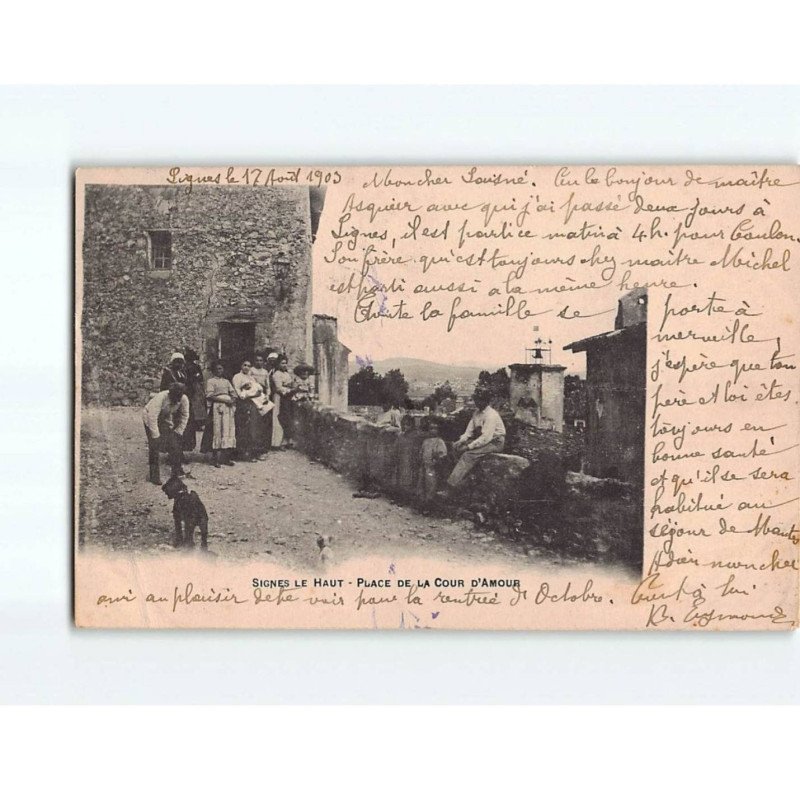 Signes le 17 Août 1903
Mon cher Loisné. On le bonjour de maître
Asquier avec qui j'ai passé deux jours à
Signes, il est parti ce matin à 4h. pour Toulon.
Son frère qui est toujours chez maître Michel
est parti aussi à la même heure.
Toute la famille se porte à
merveille,
j'espère que ton
père et toi êtes
toujours en
bonne santé
et qu'il se sera
habitué au
séjour de
Adieu mon cher
ami au plaisir de te voir pour la rentrée d'Octobre.
Tout à toi
SIGNES LE HAUT - PLACE DE LA COUR D'AMOUR